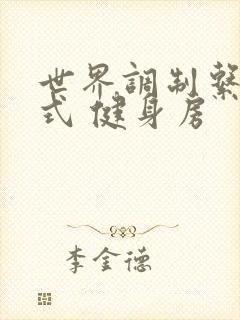 世界調制繫
式 健身房
李金德